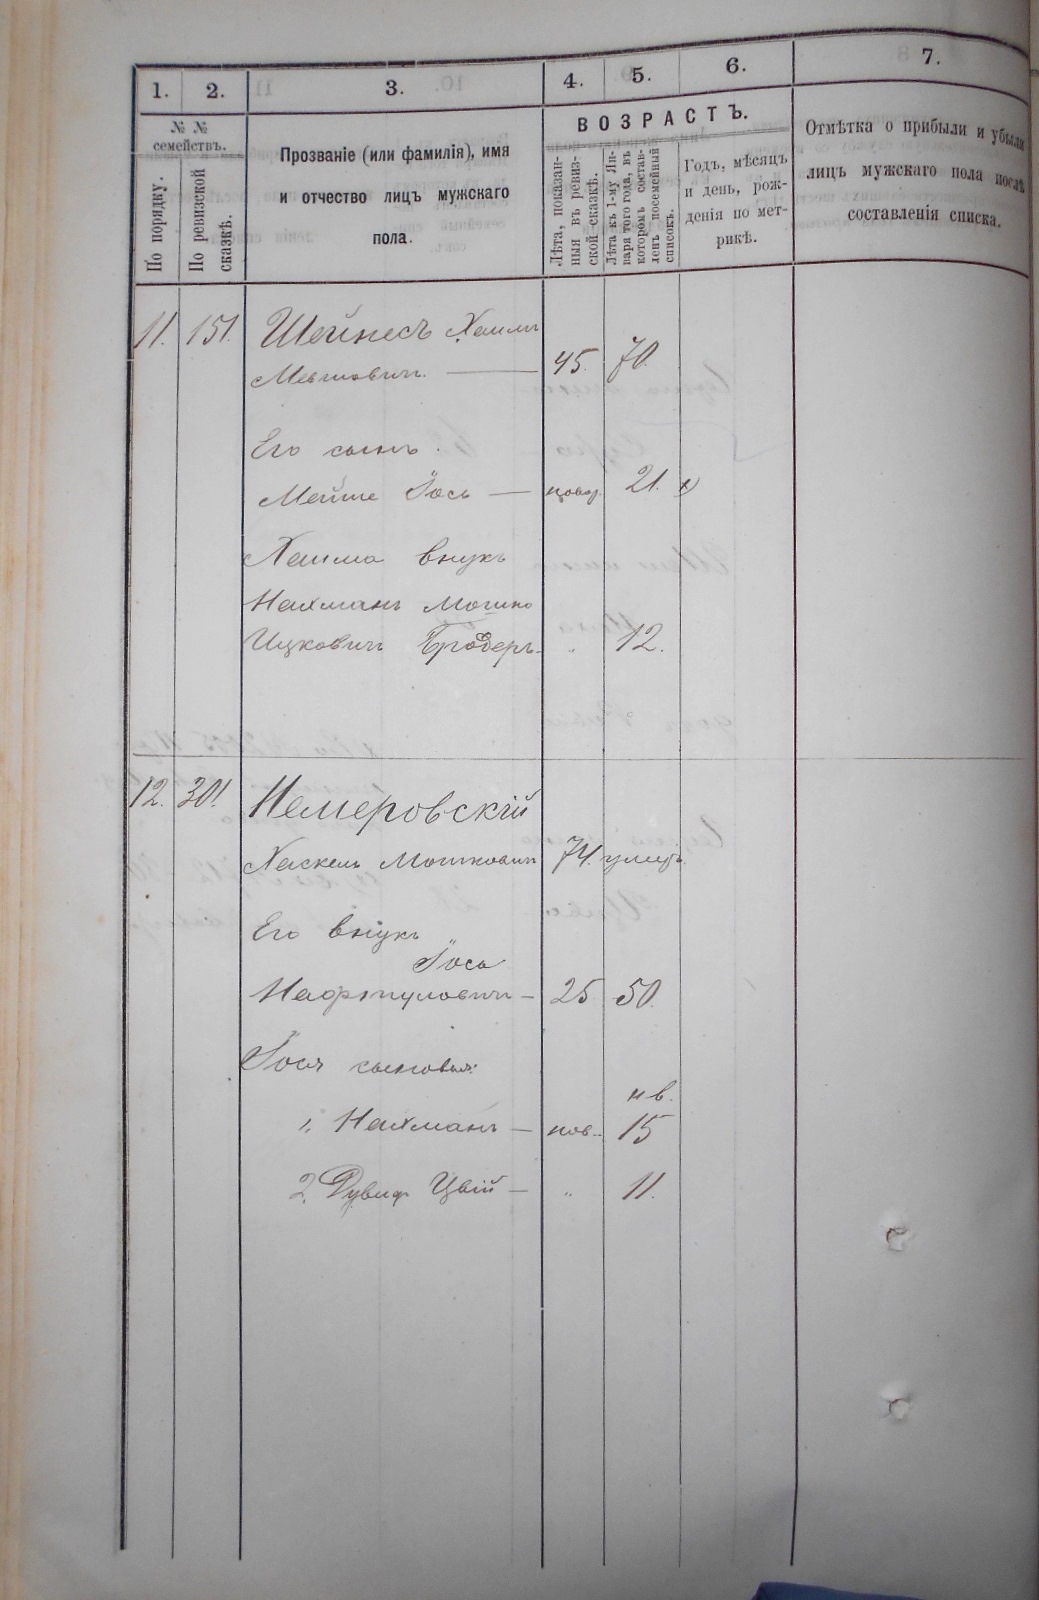 1. 2. 3. 4. 5. 6. 7.
№ №
семействъ.
По порядку.
По ревизской
сказкѣ.
Прозваніе (или фамилія), имя
и отчество лицъ мужскаго
пола.
ВОЗРАСТЪ.
Лѣта, показан-
ныя въ ревиз-
ской сказкѣ.
Лѣта къ 1-му Ян-
варя того года, въ
которомъ состав-
ленъ посемейный
списокъ.
Годъ, мѣсяцъ
и день, рож-
денія по мет-
рикѣ.
Отмѣтка о прибыли и убыли
лицъ мужскаго пола послѣ
составленія списка.
11. 151. Шейнесъ Хаимъ
Мевшовичъ. 45. 70.
Его сынъ.
Мейше Іось — 21.
Хаима внукъ
Нахманъ Мошко
Ицковичъ Бродеръ. " 12.
12. 301. Немеровскій
Хаскель Мошковичъ 74.
Его внукъ
Іось
Нафтуловичъ — 25 50.
Іося сыновья:
нв.
1. Нахманъ — нов. 15
2. Дувид Цвій — " 11.